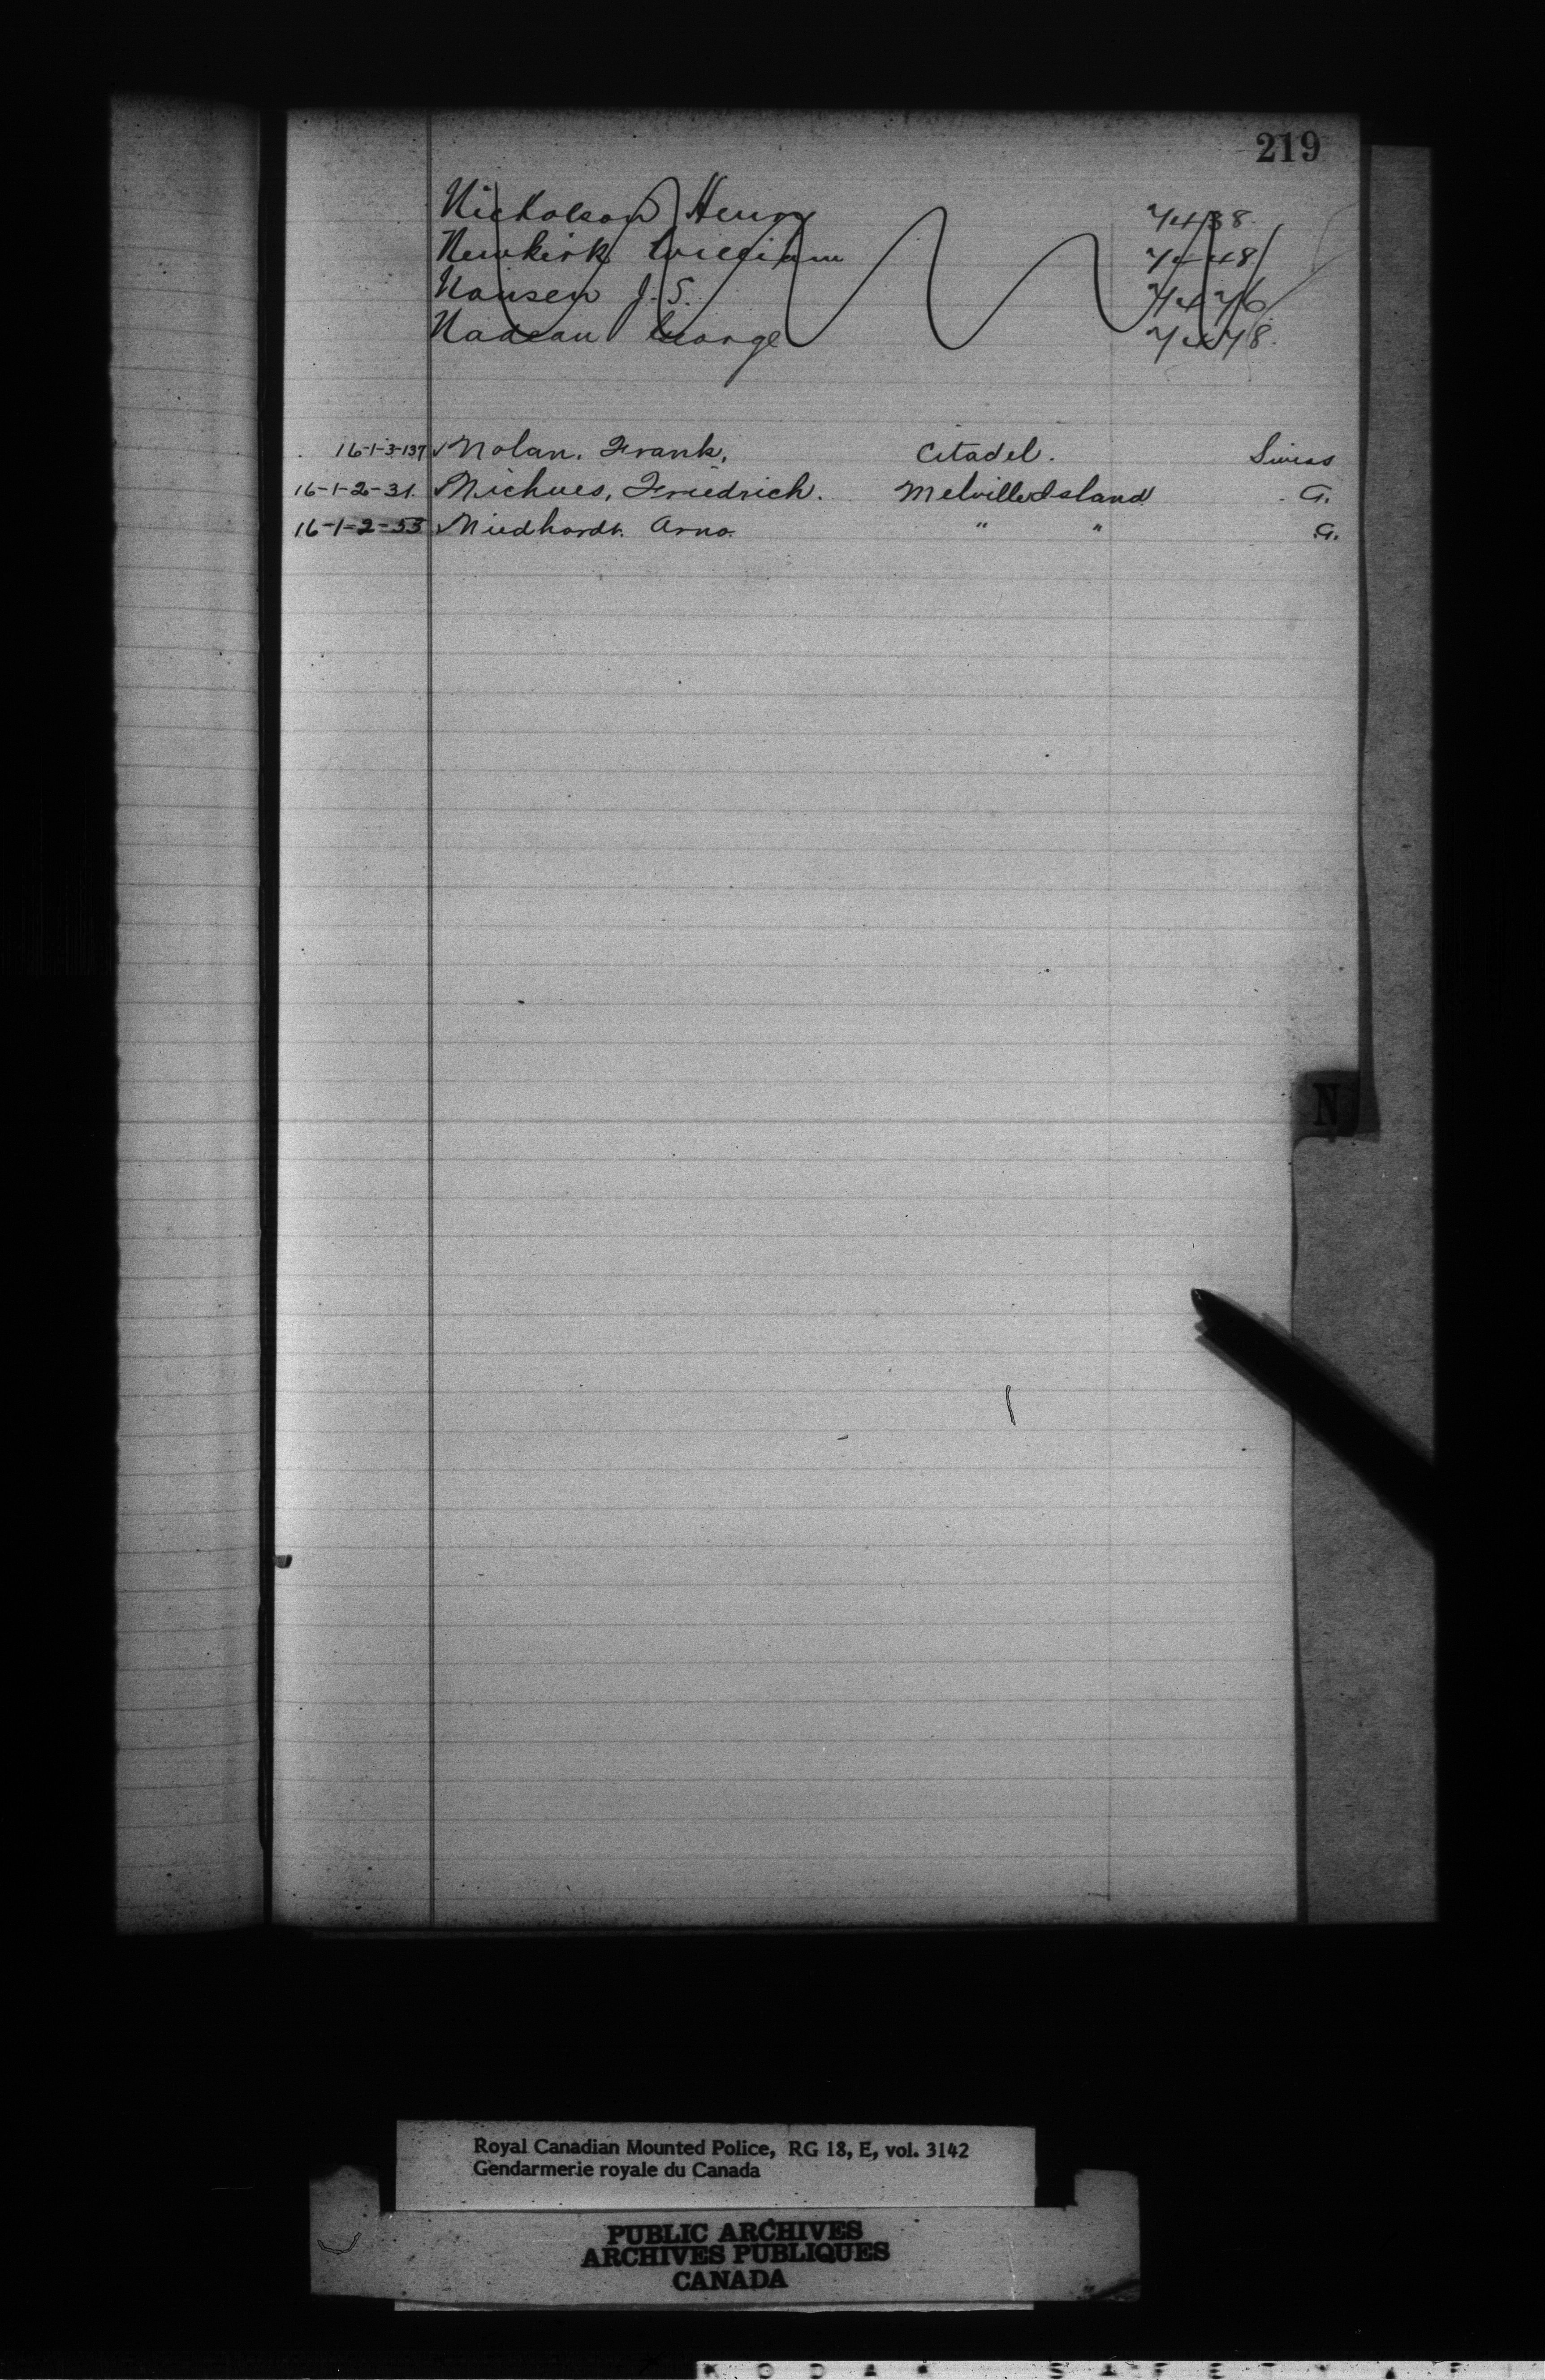 219
Nicholson Henry 7438.
Newkirk William 7448
Nansen J. S. 7476
Nadeau George 7478.
16-1-3-137 ✓ Nolan, Frank, Citadel.
16-1-2-31. ✓ Nichues, Friedrich. Melville Island G.
16-1-2-53 ✓ Niedhardt. Arno. " " G.
N
Royal Canadian Mounted Police, RG 18, E, vol. 3142
Gendarmerie royale du Canada
PUBLIC ARCHIVES
ARCHIVES PUBLIQUES
CANADA